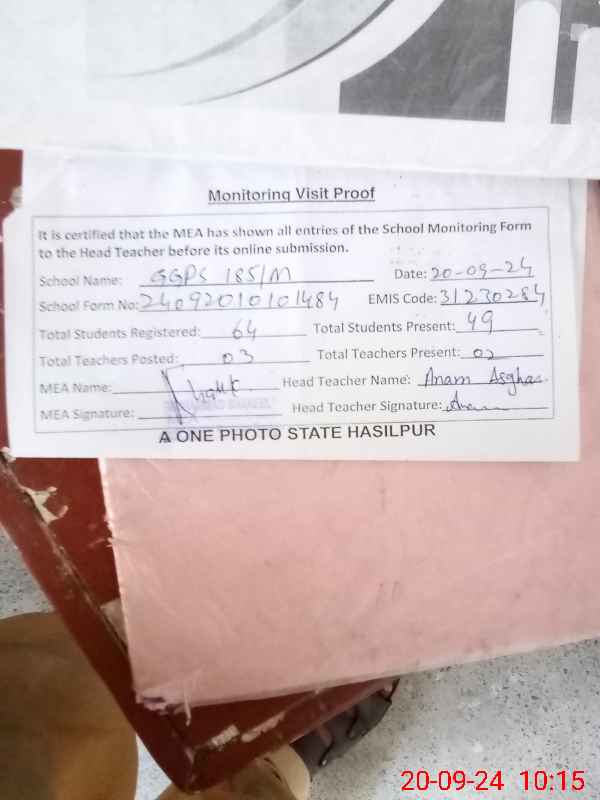 Monitoring Visit Proof
It is certified that the MEA has shown all entries of the School Monitoring Form
to the Head Teacher before its online submission.
School Name: GGPS 185/M Date: 20-09-24
School Form No: 24092010101484 EMIS Code: 31230284
Total Students Registered: 64 Total Students Present: 49
Total Teachers Posted: 03 Total Teachers Present: 02
MEA Name: Head Teacher Name: Anam Asghar
MEA Signature: Head Teacher Signature: Anam
A ONE PHOTO STATE HASILPUR
20-09-24 10:15